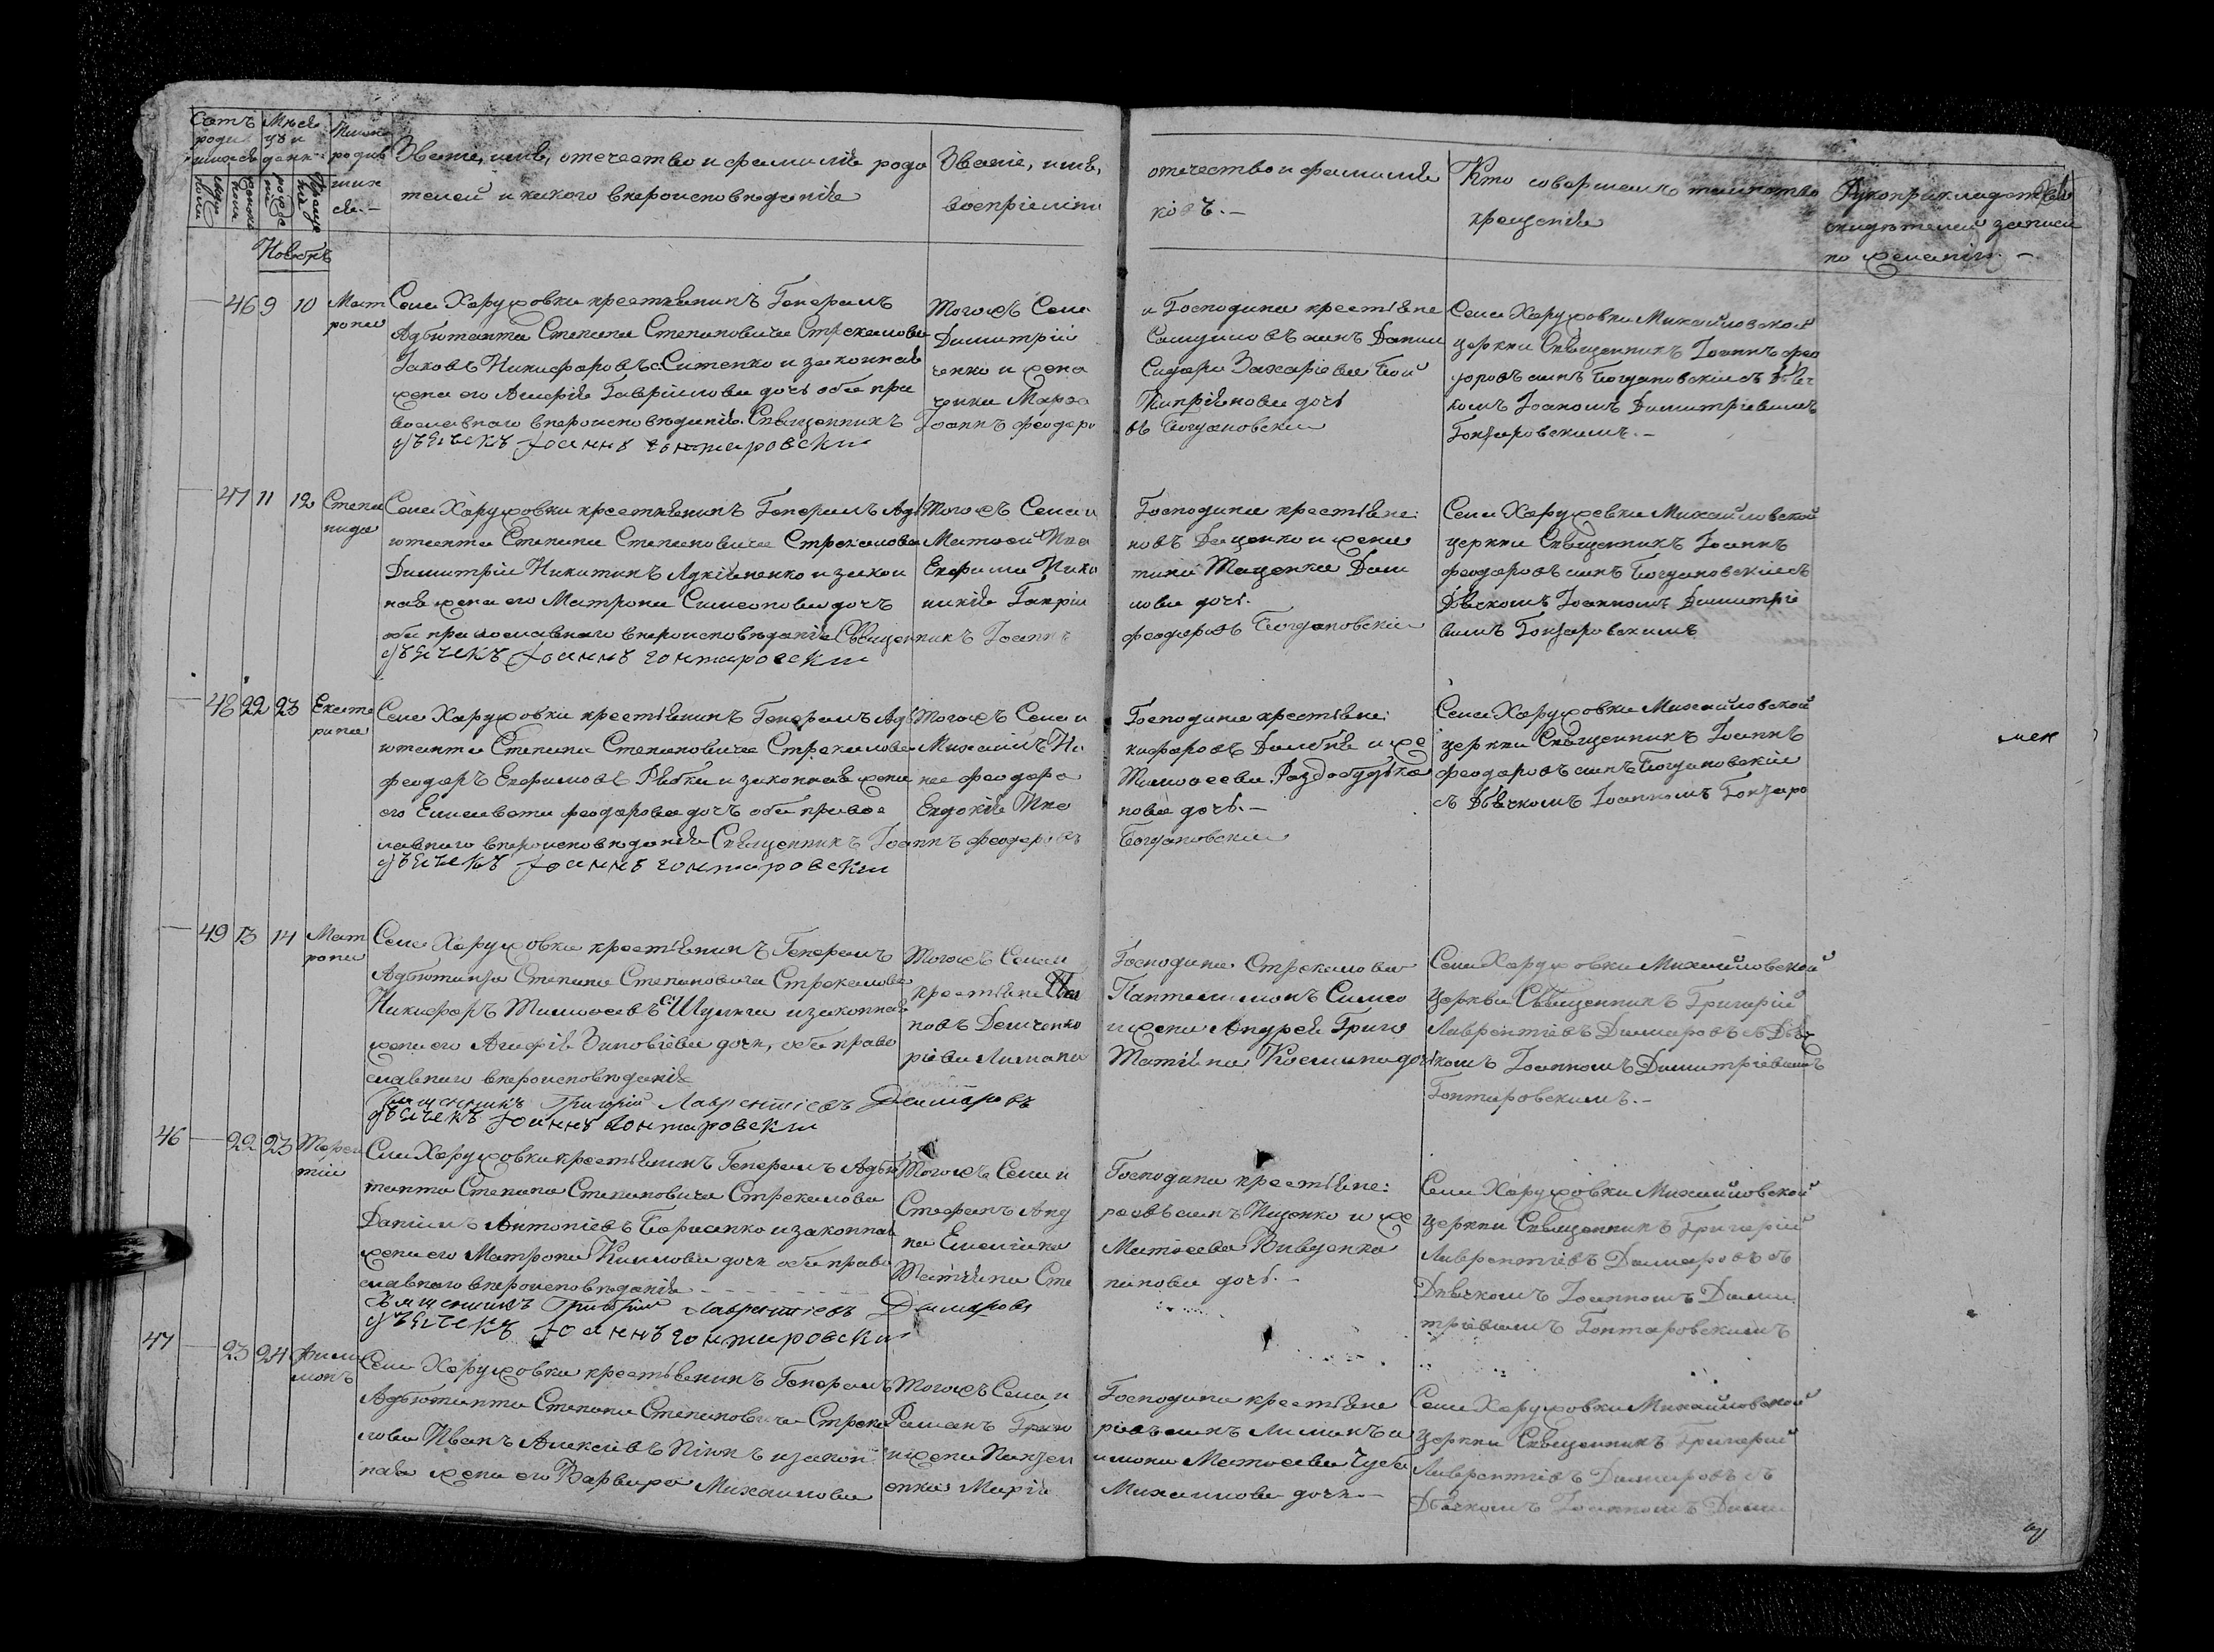 Счетъ родив шихся
Мѣся цъ и день
Имена родив шихся.-
Званіе, имя, отечество и фамилія роди
телей и какого вѣроисповѣданія
Званіе, имя,
воспріемни
отечество и фамилія
ковъ.-
Кто совершалъ таинство
крещенія
Рукоприкладство
свидѣтелей записи
по желанію.-
Ноябрь
46 9 10 Мат
рона
Села Харужовки крестянинъ Генералъ
Адъютанта Степана Степановича Стрекалова
Іаковъ Никифоровъ Ситенко и законная
жена его Агафія Гавріилова дочь оба пра
вославнаго вѣроисповѣданія. Священникъ
Дьячекъ Іоаннъ Гонтаровски
Тогожъ Села
Димитрій
ченко и жена
Марѳа
Іоаннъ Феодоро
и Господина крестьяне
Самуиловъ сынъ Данил
Сидора Захаріева
Кипріянова дочь
въ Богдановскій
Села Харужовки Михайловской
церкви Священникъ Іоаннъ Фео
доровъ сынъ Богдановскій съ Дьяч
комъ Іоаномъ Димитріевымъ
Гонтаровскимъ.-
47 11 12 Степа
нида
Села Харужовки крестянинъ Генералъ Адъ
ютанта Степана Степановича Стрекалова
Димитрій Никитинъ Лукіяненко и закон
ная жена его Матрона Симеонова дочь
оба православнаго вѣроисповѣданія Священникъ Іоаннъ
Дьячекъ Іоаннъ Гонтаровски
Тогожъ Села и
Матвей Ива
Ефрима
никія Гаврии
Господина крестьяне:
новъ Даценко и жена
Таценка Дани
лова дочь.
Феодоровъ Богдановскій
Села Харужевки Михайловской
церкви Священникъ Іоаннъ
Феодоровъ сынъ Богдановскій съ
Дьячкомъ Іоанномъ Димитріе
вымъ Гонтаровскимъ
48 22 23 Екате
рина
Села Харужовки крестьянинъ Генералъ Адъ
ютанта Степана Степановича Стрекалова
Феодоръ Ефримовъ Рябка и законная жена
его Елисавета Феодорова дочь оба право
славнаго вѣроисповѣданія Священникъ Іоаннъ Феодоровъ
Дьячекъ Іоаннъ Гонтаровски
Тогожъ Села и
Михаилъ Ни
на Феодора
Евдокія Ива
Господина крестьяне:
кифоровъ и же
Тимоѳеева Раздобудька
нова дочь.-
Богдановскій
Села Харужовки Михайловской
церкви Священникъ Іоаннъ
Феодоровъ сынъ Богдановскій
съ Дьячкомъ Іоанномъ Гонтаро
49 13 14 Мат
рона
Села Харужовки крестьянинъ Генералъ
Адъютанта Степана Степановича Стрекалова
Никифоръ Тимоѳеевъ Шулига и законная
жена его Агафія Зиновіева дочь, оба право
славнаго вѣроисповѣданія
Священникъ Григорій Лаврентіевъ Дамаровъ
Дьячекъ Іоаннъ Гонтаровски
Тогожъ Села и
крестьяне
новъ Демченко
ріева Лимана
Господина Стрекалова
Пантелимонъ Симео
и жена Андрея Григо
Татіяна Космина дочь
Села Харужовки Михайловской
Церкви Священникъ Григорій
Лаврентіевъ Дамаровъ съ Дьяч
комъ Іоанномъ Димитріевымъ
Гонтаровскимъ.-
46 22 23 Терен
тій
Села Харужовки крестьянинъ Генералъ Адъю
танта Степана Степановича Стрекалова
Даніилъ Антоніевъ Борисенко и законная
жена его Матрона Климова дочь оба право
славнаго вѣроисповѣданія
Священникъ Григорій Лаврентіевъ Дамаровъ
Дьячекъ Іоаннъ Гонтаровски
Тогожъ Села и
Стефанъ Анд
на
Татіяна Сте
Господина крестьяне:
реевъ сынъ Ищенко и же
Матвѣева Вивденка
панова дочь.-
Села Харужовки Михайловской
церкви Священникъ Григорій
Лаврентіевъ Дамаровъ съ
Дьячкомъ Іоанномъ Дими
тріевымъ Гонтаровскимъ
47 23 24 Фили
монъ
Села Харужовки крестьянинъ Генералъ
Адъютанта Степана Степановича Стрека
лова Иванъ Алексіевъ и закон
ная жена его Варвара Михаилова
Тогожъ Села и
Романъ Григо
и жена
Марія
Господина крестьяне
ріевъ сынъ Лиманъ и
Матвѣева
Михаилова дочь.-
Села Харужовки Михайловской
Церкви Священникъ Григорій
Лаврентіевъ Дамаровъ съ
Дьячкомъ Іоанномъ Дими